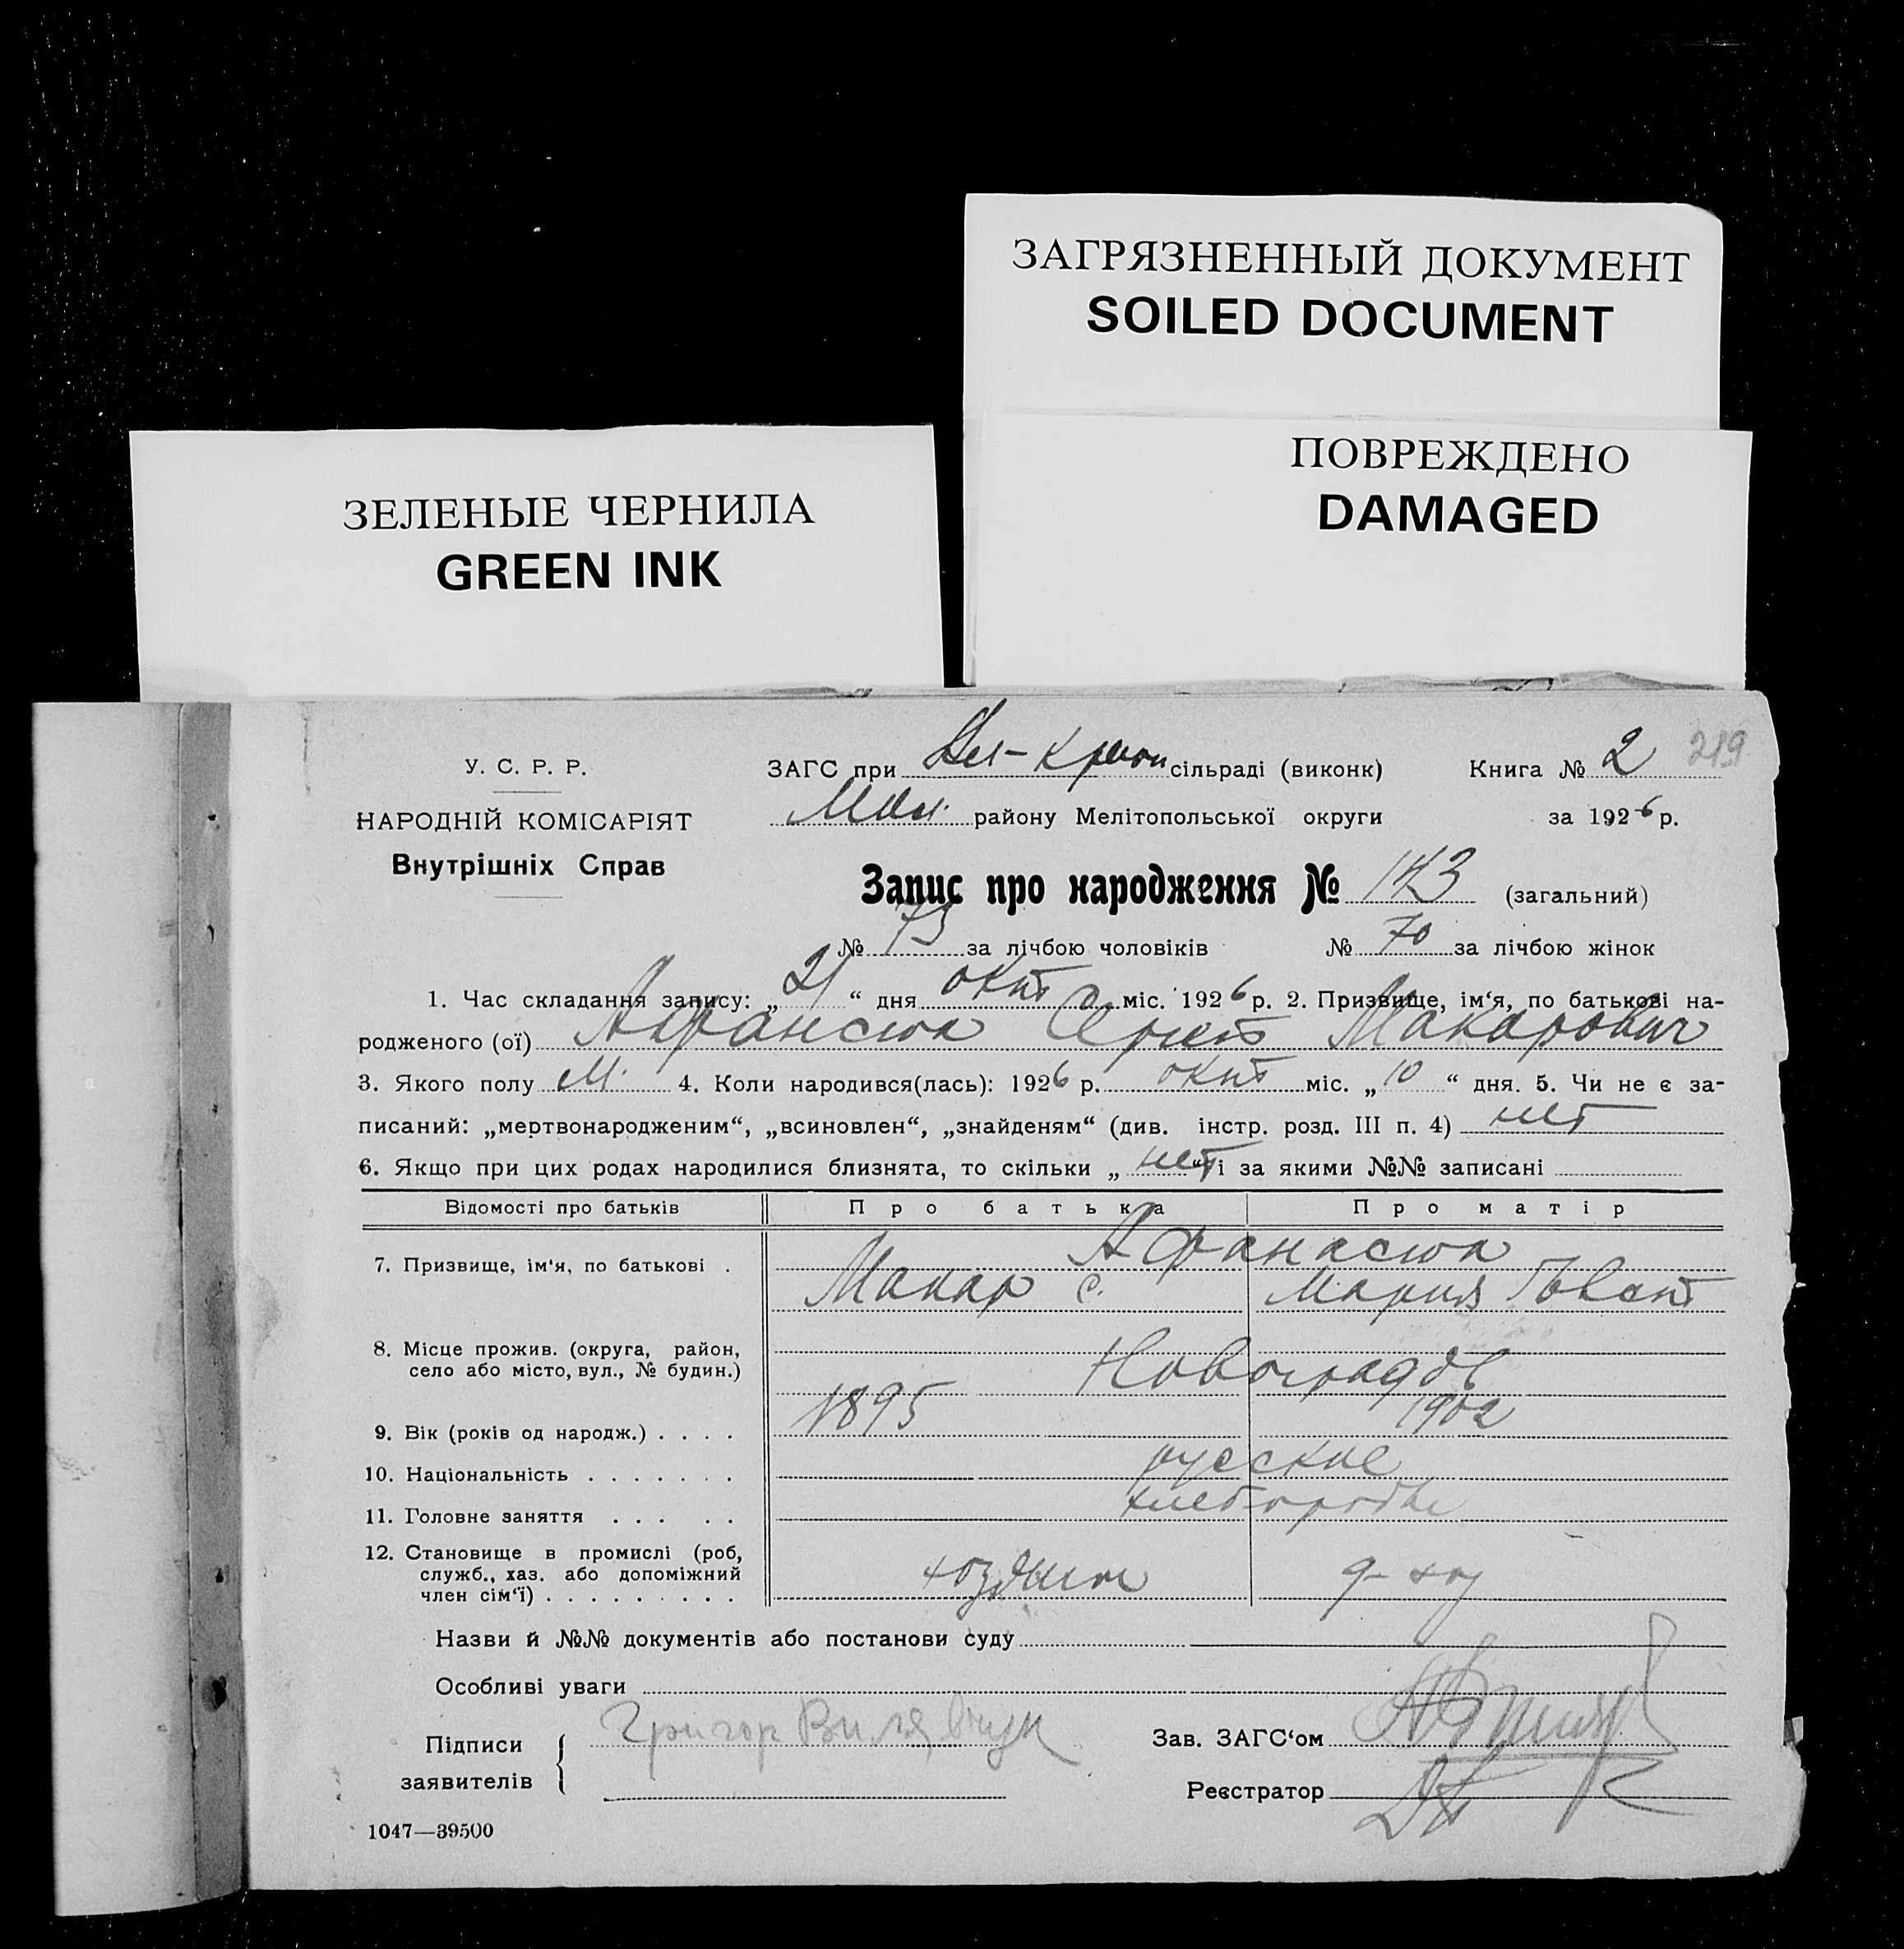 ЗАГРЯЗНЕННЫЙ ДОКУМЕНТ
SOILED DOCUMENT
ПОВРЕЖДЕНО
DAMAGED
ЗЕЛЕНЫЕ ЧЕРНИЛА
GREEN INK
У. С. Р. Р.
НАРОДНІЙ КОМІСАРІЯТ
Внутрішніх Справ
ЗАГС при сільраді (виконк) Книга № 2 219
району Мелітопольської округи за 1926 р.
Запис про народження № 143 (загальний)
№ 73 за лічбою чоловіків № 70 за лічбою жінок
1. Час складання запису: „ 21 “ дня окт міс. 1926 р. 2. Призвище, ім‘я, по батькові на-
родженого (ої) Макарович
3. Якого полу М. 4. Коли народився(лась): 1926 р. окт міс. „ 10 “ дня. 5. Чи не є за-
писаний: „мертвонародженим“, „всиновлен“, „знайденям“ (див. інстр. розд. III п. 4) нет
6. Якщо при цих родах народилися близнята, то скільки „ нет “ і за якими №№ записані
Відомості про батьків Про батька Про матір
7. Призвище, ім‘я, по батькові . Афанасюк
Макар С. Мария
8. Місце прожив. (округа, район,
село або місто, вул., № будин.)
9. Вік (років од народж.) . . . . 1895 1902
10. Національність . . . . . . . русские
11. Головне заняття . . . . .
12. Становище в промислі (роб,
служб., хаз. або допоміжний
член сім‘ї) . . . . . . . . .
Назви й №№ документів або постанови суду
Особливі уваги
Підписи
заявителів
Григор
Зав. ЗАГС‘ом
Реєстратор
1047—39500